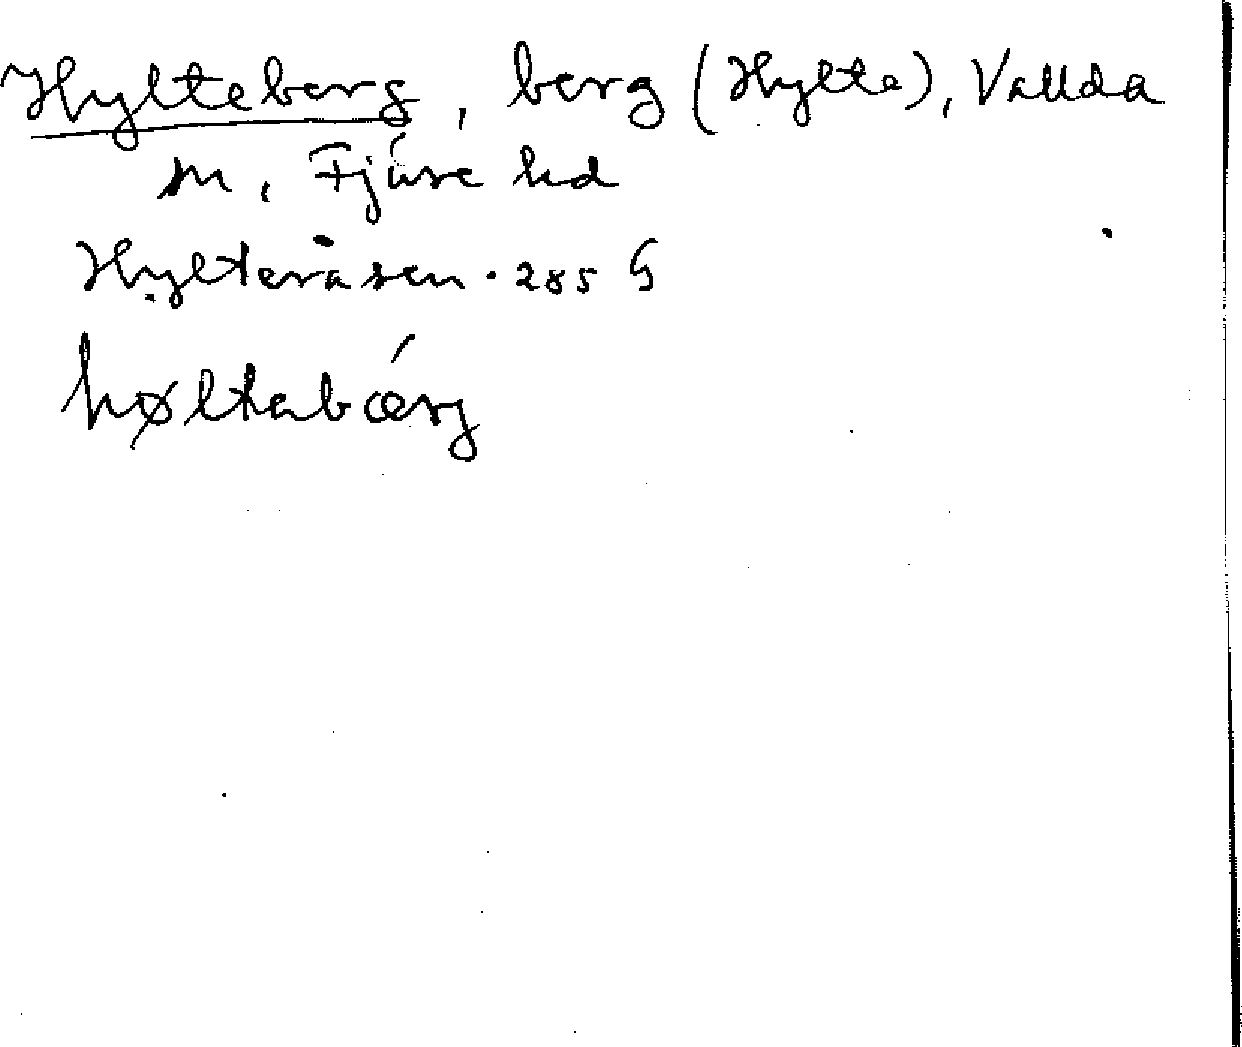 Hylteberg, berg (Hylte), Vallda
sn, Fjäre hd
Hylteråsen. 285 G
høltabǽrj